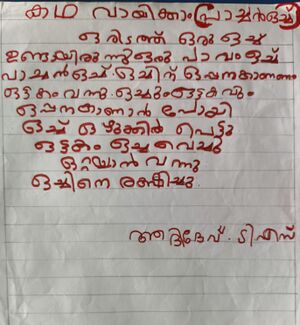 കഥ വായിക്കാം (പ്രാച്ചൻ ഒച്ച്)
ഒരിടത്ത് ഒരു ഒച്ച്
ഉണ്ടായിരുന്നു ഒരു പാവം ഒച്ച്
പാച്ചൻ ഒച്ച്. ഒച്ചിന് ഒപ്പന കാണണം
ഒട്ടകം വന്നു. ഒച്ചും ഒട്ടകവും
ഒപ്പന കാണാൻ പോയി
ഒച്ച് ഒഴുക്കിൽ പെട്ടു
ഒട്ടകം ഒച്ച വെച്ചു
ഒറ്റയാൻ വന്നു
ഒച്ചിനെ രക്ഷിച്ചു.
ആദിദേവ്. ടി എസ്